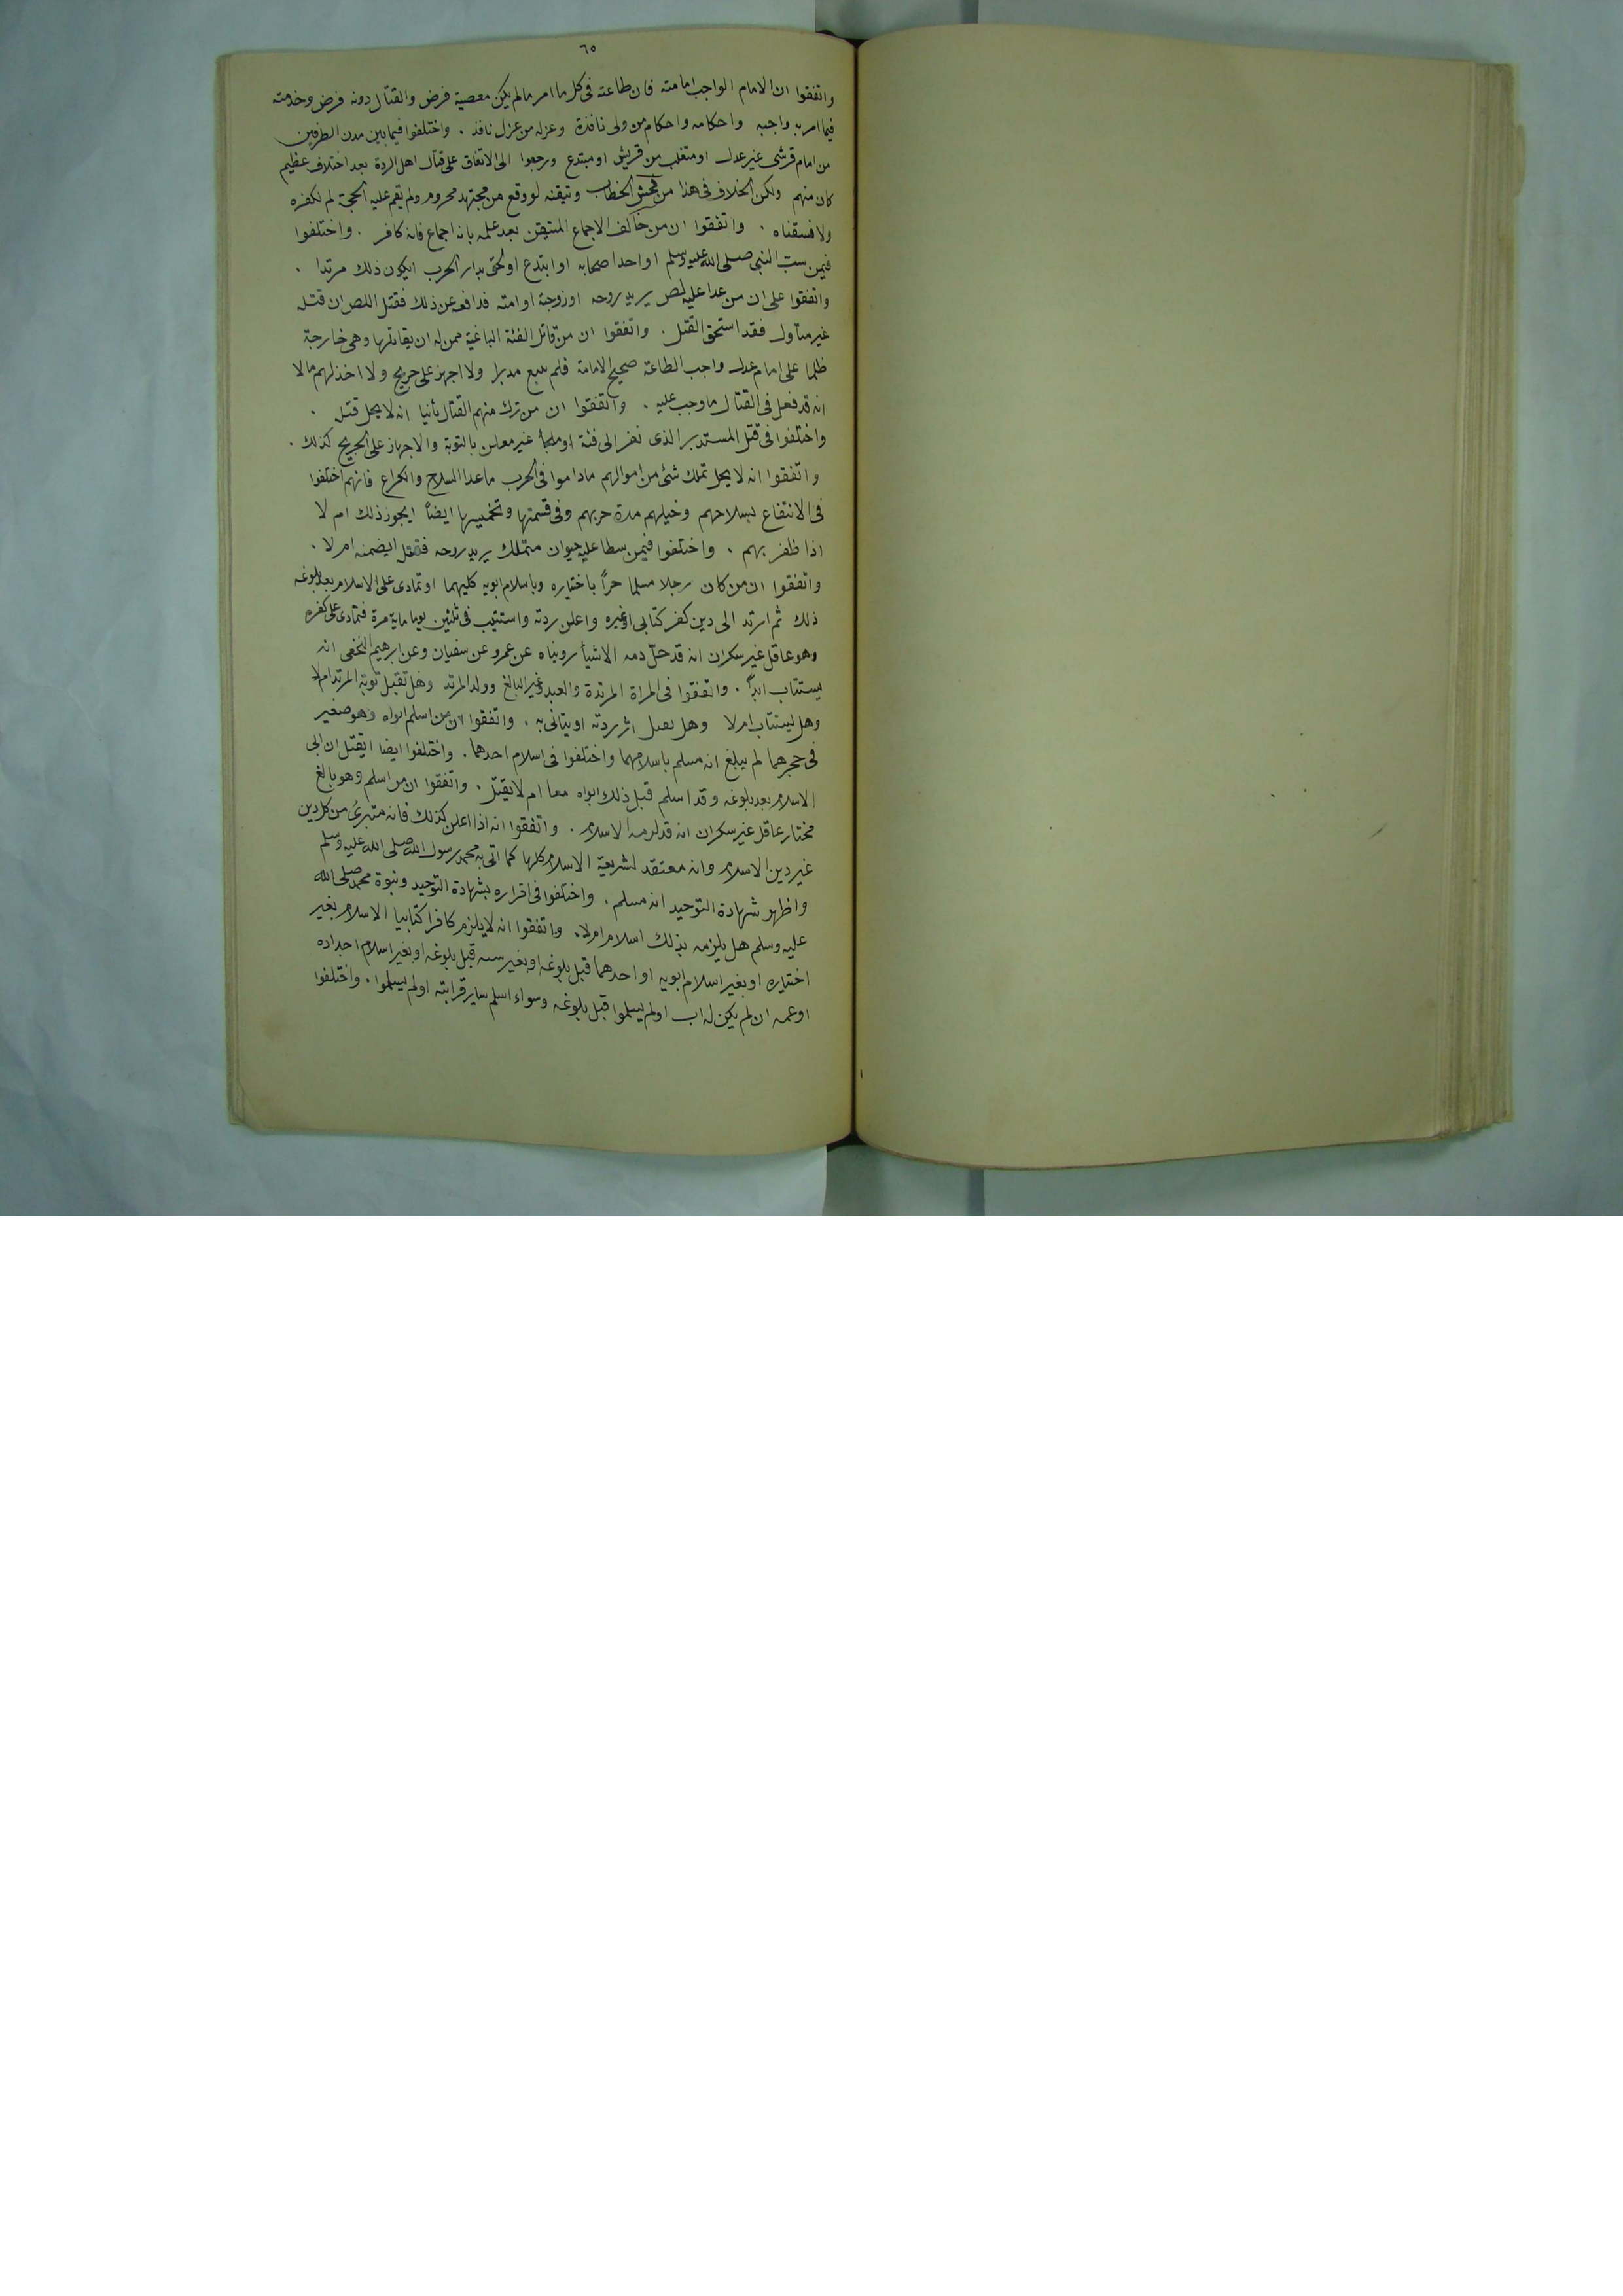 ٦٥
واتفقوا ان الامام الواجب امامته فان طاعته فى كل ما امر مالم يكن معصية فرض والقتال دونه فرض وخدمته
فيما امر به واجبه واحكامه واحكام من ولى نافذة وعزله من عزل نافذ . واختلفوا فيما بين مدن الطرفين
من امام قرشى غير عدل او متغلب من قريش او مبتدع ورجعوا الى الاتفاق على قتال اهل الردة بعد اختلاف عظيم
كان منهم ولكن الخلاف فى هذا من فحش الخطاب وتيقنه لو وقع من مجتهد محروم ولم تقم عليه الحجة لم نكفره
ولا فسقناه . واتفقوا ان من خالف الاجماع المتيقن بعد علمه بانه اجماع فانه كافر . واختلفوا
فيمن سبّ النبى صلى الله عليه وسلم او احدا صحابه او ابتدع او لحق بدار الحرب ايكون ذلك مرتدا .
واتفقوا على ان من عدا عليه لص يريد روحه او زوجة او امته فدافعه عن ذلك فقتل اللص ان قتله
غير متاول فقد استحق القتل . واتفقوا ان من قاتل الفئة الباغية ممن له ان يقاتلها وهى خارجة
ظلما على امام عدل واجب الطاعة صحيح الامامة فلم يتبع مدبرا ولا اجهز على جريح ولا اخذ لهم مالا
انه قد فعل فى القتال ما وجب عليه . واتفقوا ان من ترك منهم القتال تأنيا انه لا يحل قتله .
واختلفوا فى قتل المستدبر الذى نفر الى فئة او ملجأ غير معلن بالتوبة والاجهاز على الجريح كذلك .
واتفقوا انه لا يحل تملك شئ من اموالهم ماداموا فى الحرب ماعدا السلاح والكراع فانهم اختلفوا
فى الانتفاع بسلاحهم وخيلهم مدة حربهم وفى قسمتها وتخميسها ايضاً ايجوز ذلك ام لا
اذا ظفر بهم . واختلفوا فيمن سطا عليه حيوان متملك يريد روحه فقتل ايضمنه ام لا .
واتفقوا ان من كان رجلا مسلما حراً باختياره وباسلام ابويه كليهما او تمادى على الاسلام بعد بلوغه
ذلك ثم ارتد الى دين كفر كتابى او غيره واعلن ردته واستتيب فى ثلثين يوما ماية مرة فتمادى على كفره
وهو عاقل غير سكران انه قد حلّ دمه الا شيأ رويناه عن عمرو عن سفيان وعن ابرهيم النخعى انه
يستتاب ابداً . واتفقوا فى المراة المرتدة والعبد وغير البالغ وولد المرتد وهل تقبل توبة المرتد ام لا
وهل يستتاب ام لا وهل يقتل اثر ردته او يتانى به . واتفقوا ان من اسلم ابواه وهو صغير
فى حجرهما لم يبلغ انه مسلم باسلامهما واختلفوا فى اسلام احدهما . واختلفوا ايضا ايقتل ان ابى
الاسلام بعد بلوغه وقد اسلم قبل ذلك ابواه معا ام لا يقتل . واتفقوا ان من اسلم وهو بالغ
مختار عاقل غير سكران انه قد لزمه الاسلام . واتفقوا انه اذا اعلن كذلك فانه متبرئ من كل دين
غير دين الاسلام وانه معتقد لشريعة الاسلام كلها كما اتى به محمد رسول الله صلى الله عليه وسلم
واظهر شهادة التوحيد انه مسلم . واختلفوا فى اقراره بشهادة التوحيد ونبوة محمد صلى الله
عليه وسلم هل يلزمه بذلك اسلام ام لا . واتفقوا انه لا يلزم كافرا كتابيا الاسلام بغير
اختياره او بغير اسلام ابويه او احدهما قبل بلوغه او بغير سبيه قبل بلوغه او بغير اسلام اجداده
او عمه ان لم يكن له اب او لم يسلموا قبل بلوغه وسواء اسلم ساير قرابته او لم يسلموا . واختلفوا